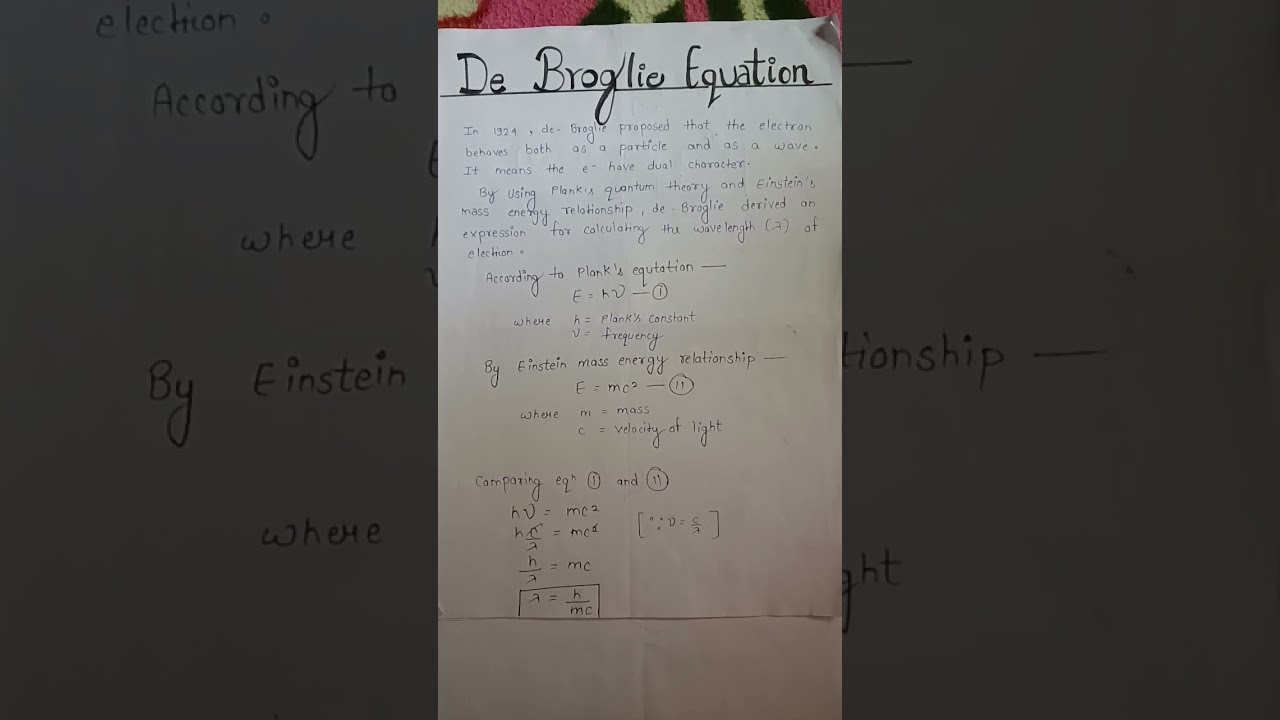 De Broglie Equation
In 1924, de-Broglie proposed that the electron
behaves both as a particle and as a wave.
It means the e- have dual character.
By Using Plank's quantum theory and Einstein's
mass energy relationship, de-Broglie derived an
expression for calculating the wavelength (λ) of
election.
According to Plank's equtation —
E = hν — (I)
where h = Plank's constant
ν = frequency
By Einstein mass energy relationship —
E = mc² — (II)
where m = mass
c = velocity of light
Comparing eqⁿ (I) and (II)
hν = mc²
h c/λ = mc² [∵ υ = c/λ]
h/λ = mc
λ = h/mc
election.
According to
where
By Einstein
tionship —
where
ght